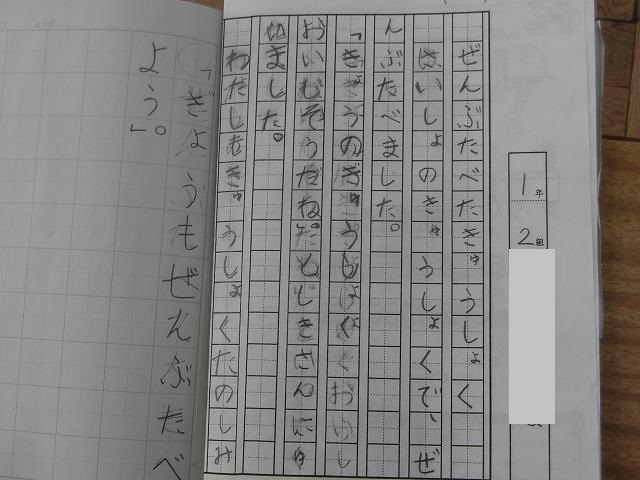 1年2組
ぜんぶたべたきゅうしょく
はいしょのきゅうしょくで、ぜ
んぶたべました。
「きょうのきゅうしょく
おいしそうだね。」としきさんにゆ
いました。
わたしもきゅうしょくたのしみ
「きょうもぜんぶたべ
よう」。